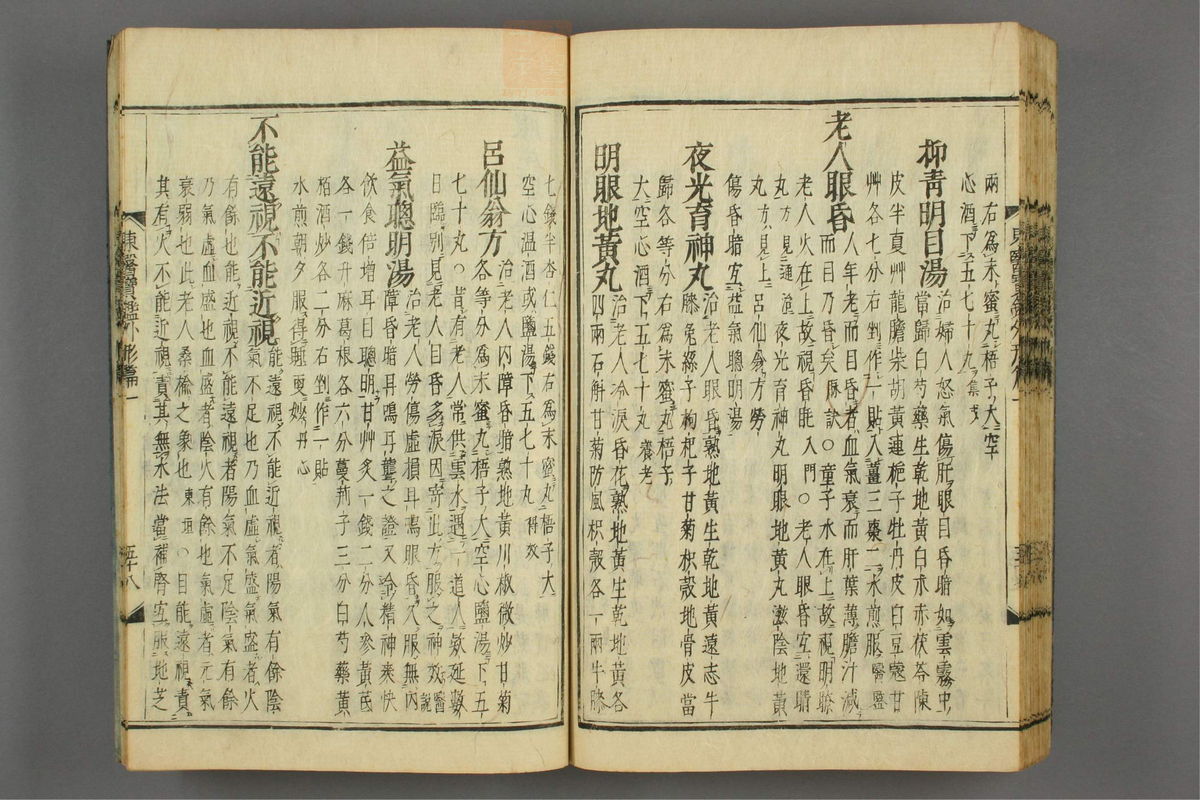 兩右爲末蜜丸梧子大空
心酒下五七十丸集要
抑靑明目湯 治婦人怒氣傷肝眼目昏暗如雲霧中
當歸白芍藥生乾地黃白朮赤茯苓陳
皮半夏艸龍膽柴胡黃連梔子牡丹皮白豆蔲甘
艸各七分右剉作一貼入薑三棗二水煎服醫鑑
老人眼昏 人年老而目昏者血氣衰而肝葉薄膽汁減
而目乃昏矣脉訣○童子水在上故視明瞭
老人火在上故視昏眊入門○老人眼昏宜還睛
丸方見上 夜光育神丸明眼地黃丸滋陰地黃
丸方見上 呂仙翁方勞
傷昏暗宜益氣聰明湯
夜光育神丸 治老人眼昏熟地黃生乾地黃遠志牛
膝兔絲子枸杞子甘菊枳殼地骨皮當
歸各等分右爲末蜜丸梧子
大空心酒下五七十丸養老
明眼地黃丸 治老人冷淚昏花熟地黃生乾地黃各
四兩石斛甘菊防風枳殼各一兩牛膝
七錢半杏仁五錢右爲末蜜丸梧子大
空心溫酒或鹽湯下五七十丸
呂仙翁方 治老人內障昏暗熟地黃川椒微炒甘菊
各等分爲末蜜丸梧子大空心鹽湯下五
七十丸○昔有老人常供雲水遇一道人款延數
日臨別見老人目昏多淚因寄此方服之神效醫說
益氣聰明湯 治老人勞傷虛損耳鳴眼昏久服無內
障昏暗耳鳴耳聾之證又令精神爽快
飮食倍增耳目聰明甘艸炙一錢二分人參黃芪
各一錢升麻葛根各六分蔓荊子三分白芍藥黃
栢酒炒各二分右剉作一貼
水煎朝夕服得睡更妙丹心
不能遠視不能近視 能遠視不能近視者陽氣有餘陰
氣不足也乃血虛氣盛氣盛者火
有餘也能近視不能遠視者陽氣不足陰氣有餘
乃氣虛血盛也血盛者陰火有餘也氣虛者元氣
衰弱也此老人桑楡之象也東垣○目能遠視責
其有火不能近視責其無水法當補腎宜服地芝
東醫寶鑑外形篇一
五十八